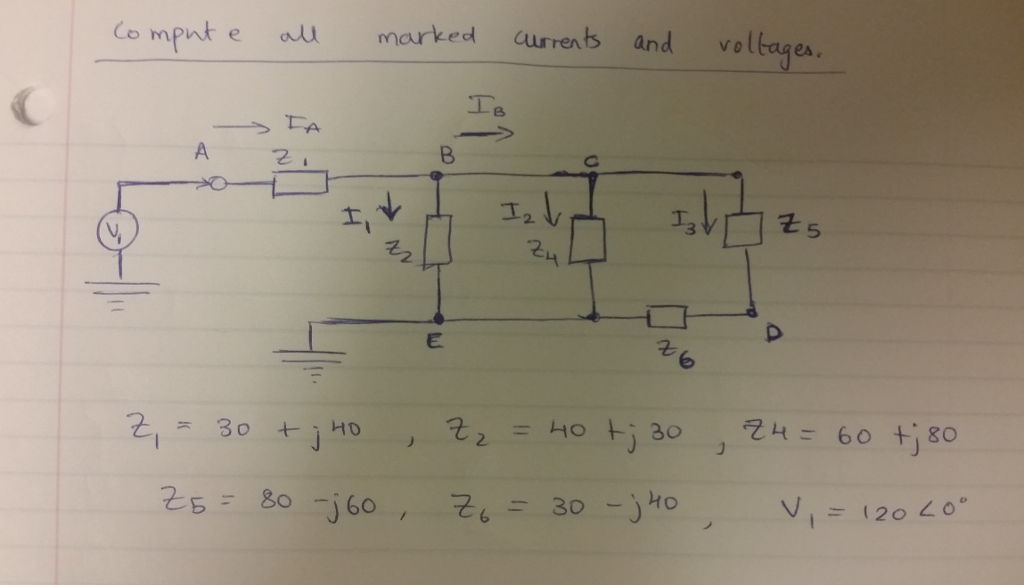 Compute all marked currents and voltages.
I_B
→ I_A
A Z_1 B C
V_1 I_1 ↓ Z_2 I_2 ↓ Z_4 I_3 ↓ Z5
E Z_6 D
Z_1 = 30 + j40 , Z_2 = 40 + j30 , Z4 = 60 + j80
Z5 = 80 - j60 , Z_6 = 30 - j40 , V_1 = 120 <0°